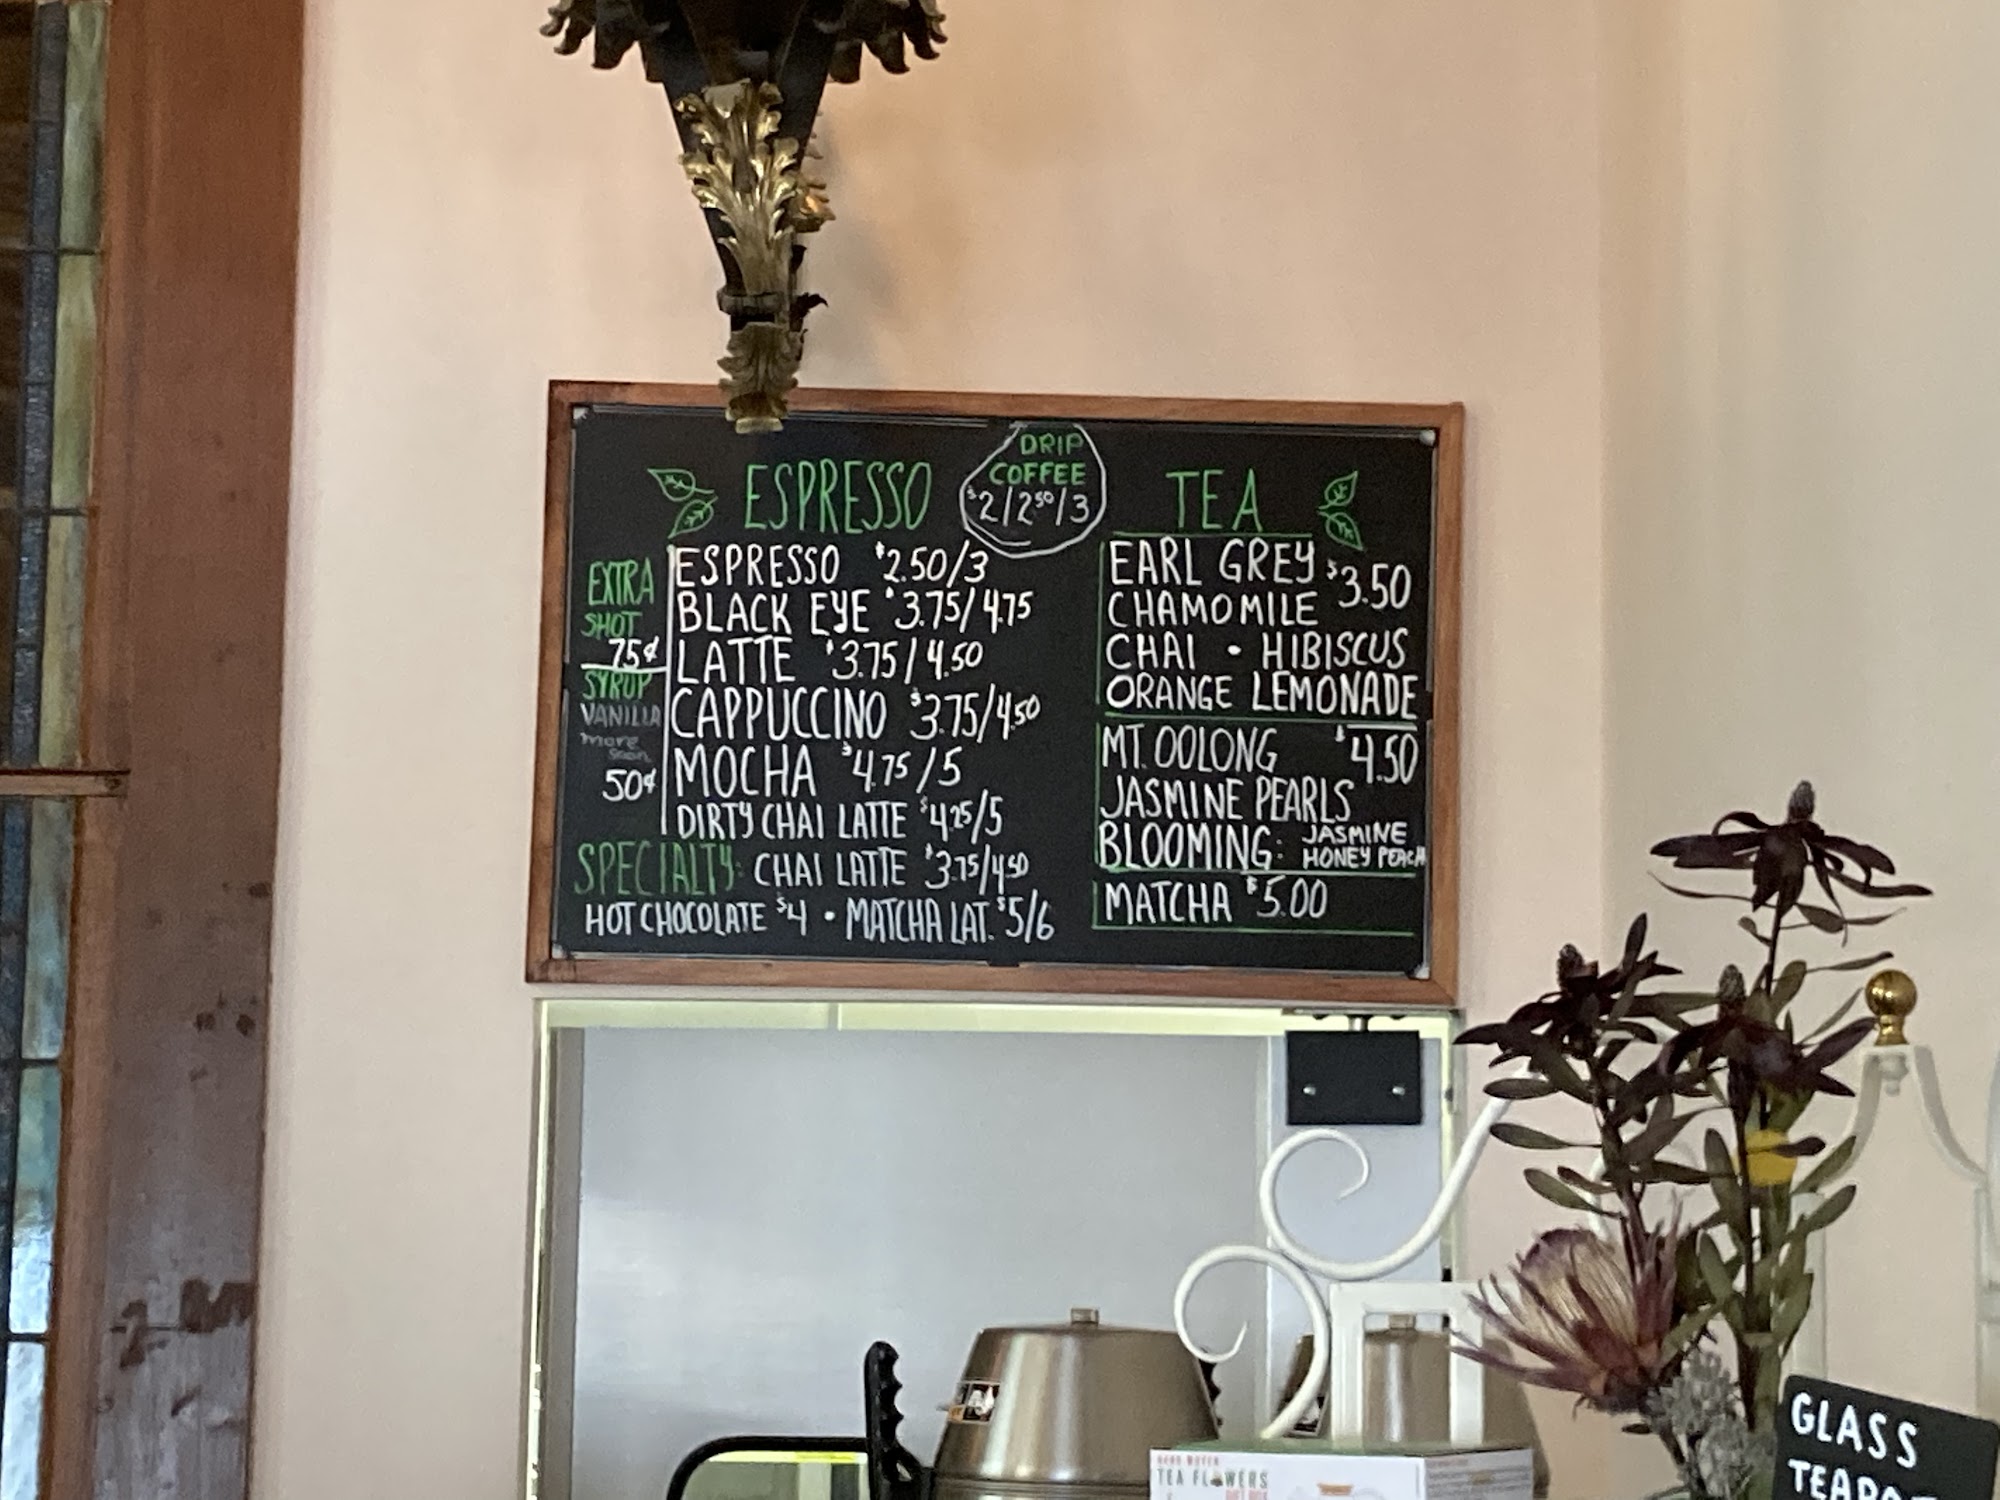 DRIP
COFFEE
$2/2⁵⁰/3
ESPRESSO
EXTRA
SHOT
75¢
SYRUP
VANILLA
more
soon
50¢
ESPRESSO $2.50/3
BLACK EYE $3.75/4.75
LATTE $3.75/4.50
CAPPUCCINO $3.75/4.50
MOCHA $4.75/5
DIRTY CHAI LATTE $4.25/5
SPECIALTY: CHAI LATTE $3.75/4.50
HOT CHOCOLATE $4 • MATCHA LAT. $5/6
TEA
EARL GREY $3.50
CHAMOMILE
CHAI • HIBISCUS
ORANGE LEMONADE
MT. OOLONG $4.50
JASMINE PEARLS
BLOOMING: JASMINE
HONEY PEACH
MATCHA $5.00
TEA FLOWERS
GLASS